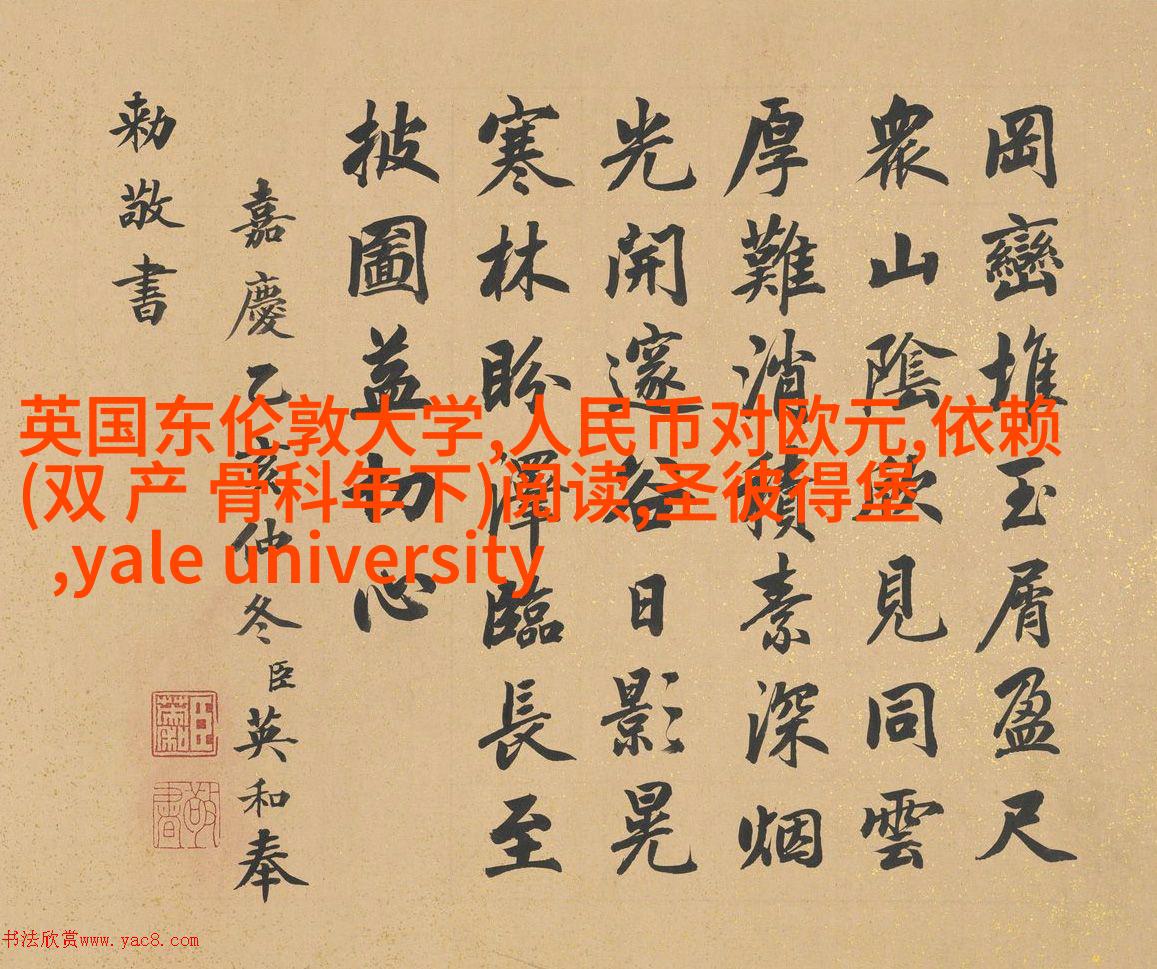 岡巒堆玉屑盈尺
衆山陰見同雲
厚難消積素深烟
光開邃谷日影晃
寒林盼澤臨長至
披圖益切心
嘉慶乙亥仲冬臣英和奉
勅敬書
敬書
英国东伦敦大学,人民币对欧元,依赖
(双 产 骨科年下)阅读,圣彼得堡
,yale university
书法欣赏www.yac8.com